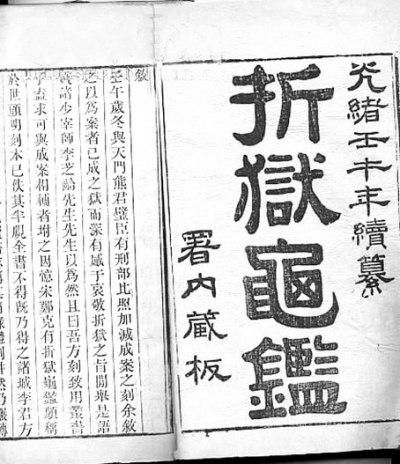 光緒壬午年續纂
折獄龜鑑
署內藏板
敘
壬午歲冬與天門熊君璧臣有刑部比照加減成案之刻余敘
之以為案者已成之獄而深有感于哀敬折獄之旨間舉是語
諸少宰師李芝齡先生先生以為然且曰吾方刻致用叢書
盍求可與成案相輔者坿之因憶宋鄭克有折獄龜鑑頗稱
於世顧明刻本已佚其半覓全書不得旣乃得之諸城李君方